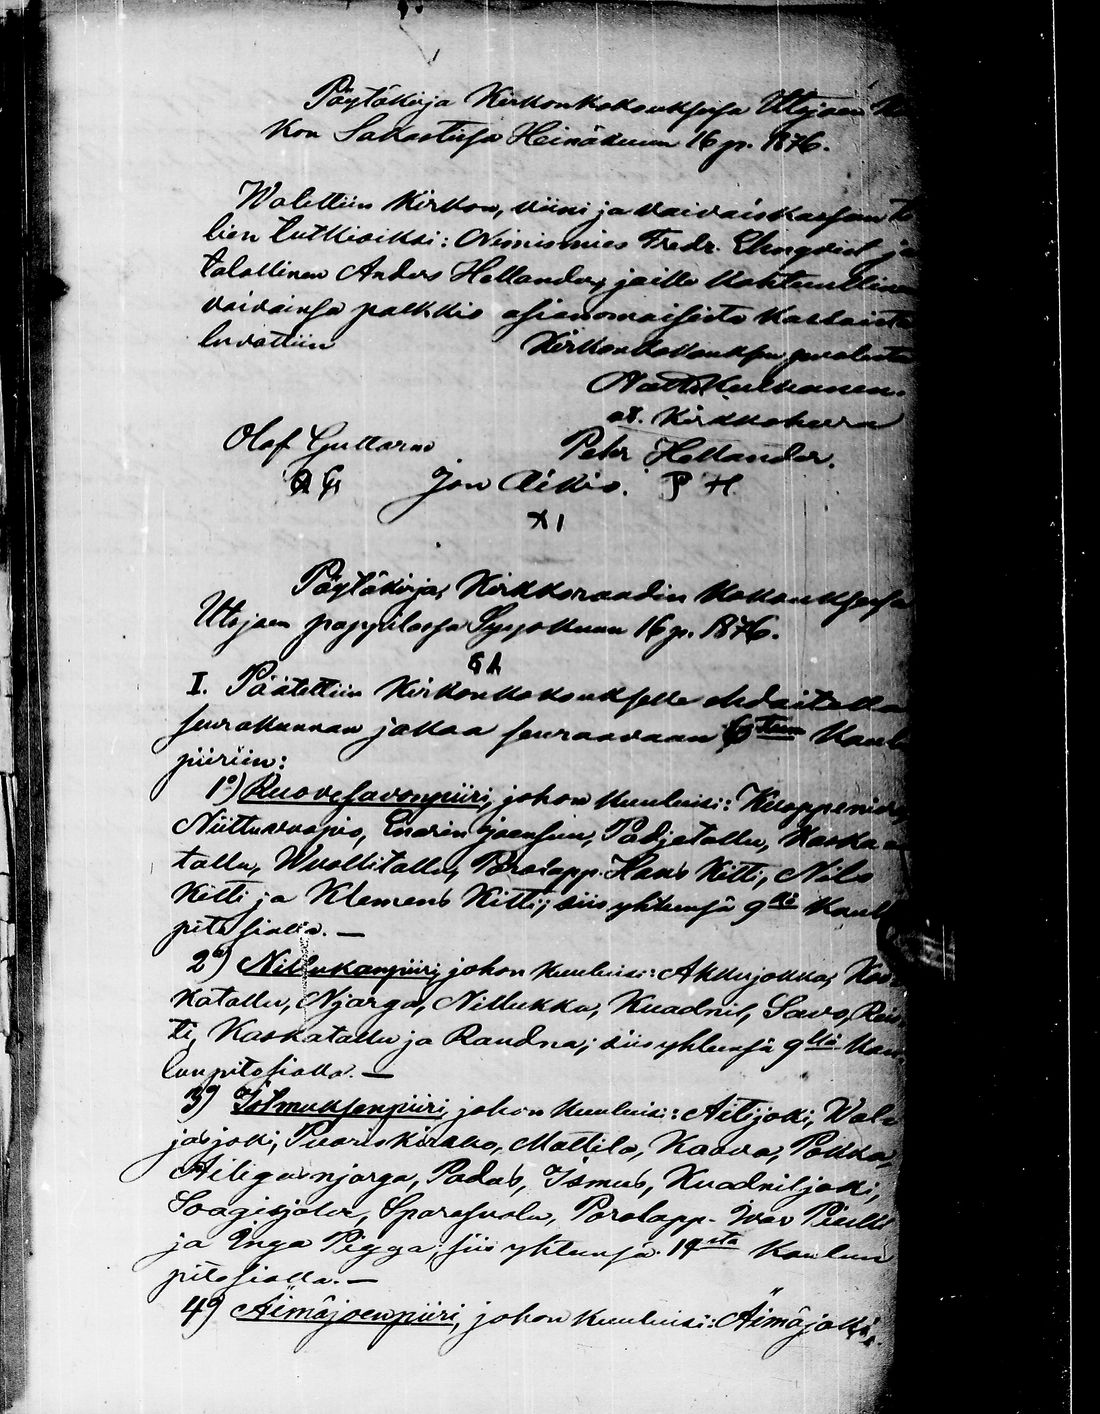 Pöytäkirja Kirkonkokouksessa Utsjoen
kon Sakastissa Heinäkuun 16 p. 1876.
Walittiin Kirkon, viini ja vaivaiskassan ti
lien tutkioiksi: Nimismies Fredr. ja
talollinen Anders Hellander, joille kohtuullinen
vaivainsa palkkio asianomaisista kassoista
luvattiin Kirkonkokouksen puolesta
Kirkkoherra
Olof Guttorm Petr Hellander.
O G Jon Aikio. P H.
Pöytäkirja, Kirkkoraadin kokouksessa
Utsjoen pappilassa Syysokuun 16 p. 1876.
I. Päätettiin Kirkonkokoukselle ehdoitella
seurakunnan jakaa seuraavaan Koulu
piiriin:
1o) Ruovesavonpiiri, johon kuuluisi:
Niittuvuopio, Enarin joensuu, Padjetallu, Kaska
tallu, Wuollitallu, Porolapp. Hans Kitti, Nils
Kitti ja Klemens Kitti; siis yhteensä 9llä koul
pitosialla. —
2o) Nillukanpiiri, johon kuuluisi: Akkujokka,
katallu, Njarga, Nillukka, Kuadnil, Savo,
ti, Kaskatallu ja Raudna; siis yhteensä 9llä kou
lunpitosialla. —
3o) johon kuuluisi: Aitijoki,
jasjoki, Mattila, Kaava, Pokka,
Ailigasnjarga, Padas, Kuadniljoki,
Porolapp.
ja Inga Pigga; siis yhteensä koulun
pitosialla. —
4o) Äimäjoenpiiri, johon kuuluisi: Äimäjoki,